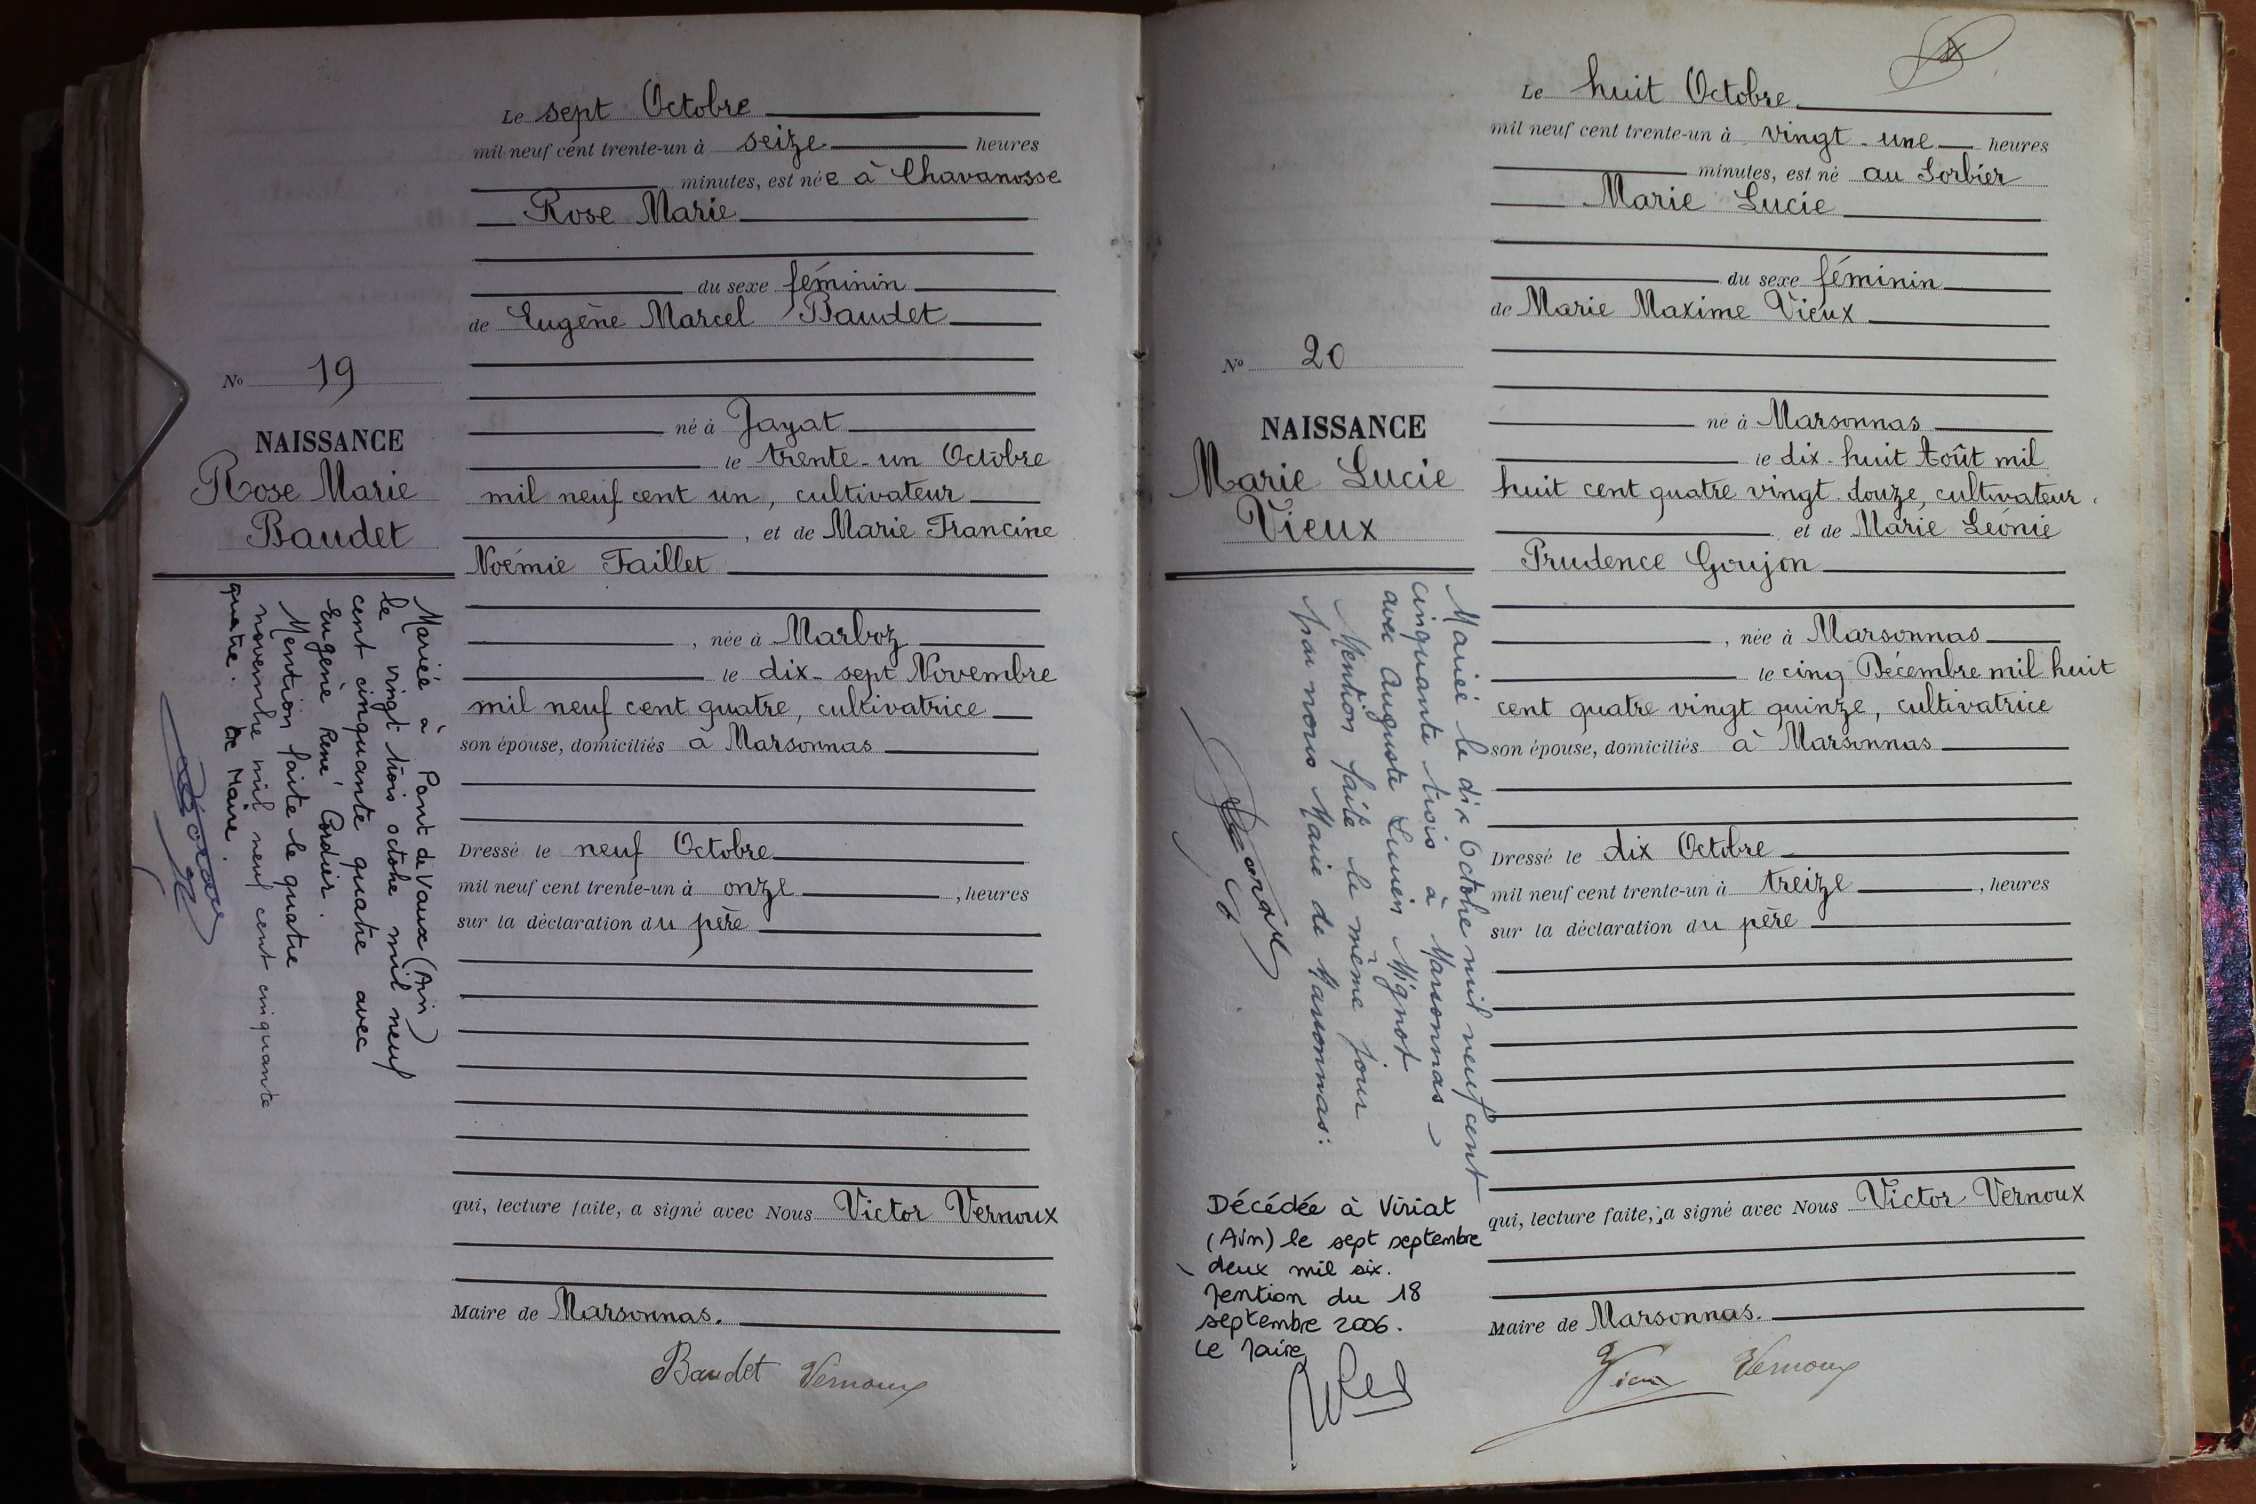 Le sept Octobre
mil neuf cent trente-un à seize heures
minutes, est née à Chavanosse
Rose Marie
du sexe féminin
de Eugène Marcel Baudet
né à Jayat
le trente-un Octobre
mil neuf cent un, cultivateur
, et de Marie Francine
Noémie Faillet
, née à Marboz
le dix-sept Novembre
mil neuf cent quatre, cultivatrice
son épouse, domiciliés à Marsonnas
Dressé le neuf Octobre
mil neuf cent trente-un à onze , heures
sur la déclaration du père
qui, lecture faite, a signé avec Nous Victor Vernoux
Maire de Marsonnas.
Baudet Vernoux
No 19
NAISSANCE
Rose Marie
Baudet
Mariée à Pont de Vaux (Ain)
le vingt trois octobre mil neuf
cent cinquante quatre avec
Eugène René Cordier.
Mention faite le quatre
novembre mil neuf cent cinquante
quatre. Le Maire.
Le huit Octobre
mil neuf cent trente-un à vingt-une heures
minutes, est né au Sorbier
Marie Lucie
du sexe féminin
de Marie Maxime Vieux
né à Marsonnas
le dix-huit Août mil
huit cent quatre vingt-douze, cultivateur.
et de Marie Léonie
Prudence Goujon
, née à Marsonnas
le cinq Décembre mil huit
cent quatre vingt quinze, cultivatrice
son épouse, domiciliés à Marsonnas
Dressé le dix Octobre
mil neuf cent trente-un à treize , heures
sur la déclaration du père
qui, lecture faite, a signé avec Nous Victor Vernoux
Maire de Marsonnas.
Vieux Vernoux
No 20
NAISSANCE
Marie Lucie
Vieux
Mariée le dix Octobre mil neuf cent
cinquante trois à Marsonnas
avec Auguste Lucien Mignot
Mention faite le même jour
par nous Maire de Marsonnas:
Décédée à Viriat
(Ain) le sept septembre
deux mil six.
Mention du 18
septembre 2006.
Le Maire